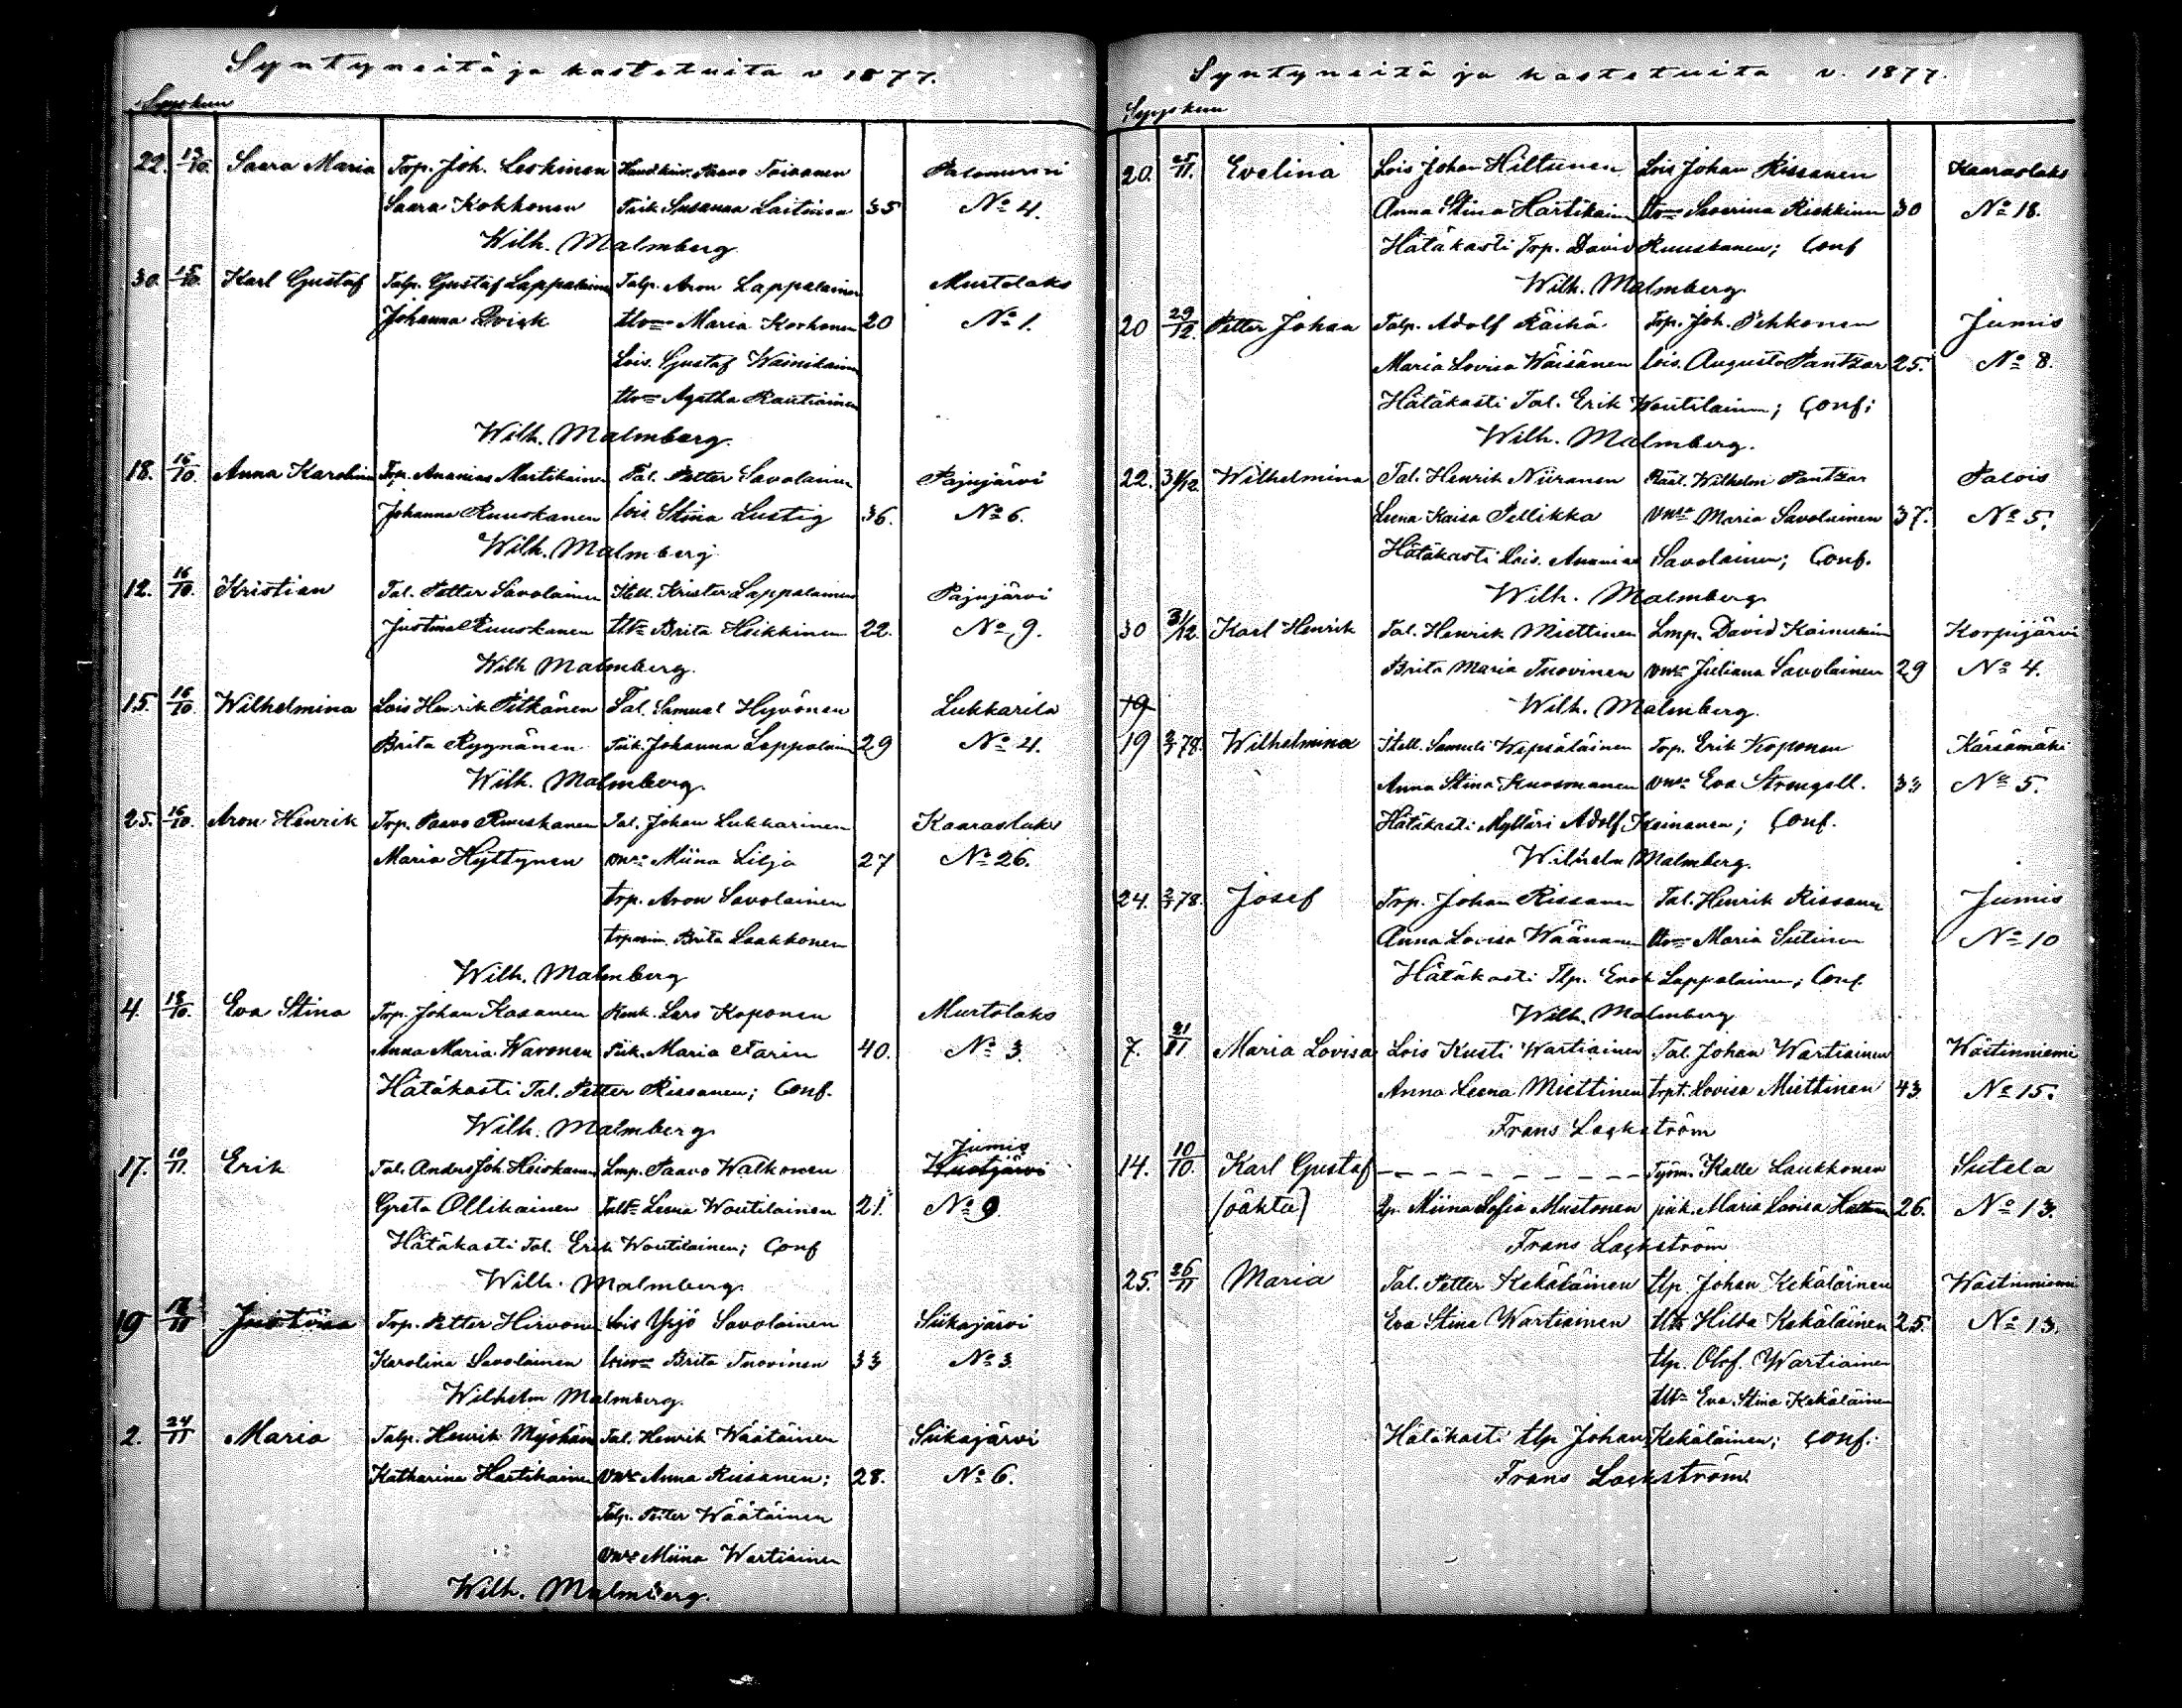 Syntyneitä ja kastetuita v 1877.
Syyskuu
22. 13/10. Saara Maria Torp. Joh. Leskinen Paavo Toivanen Palomurvi
Saara Kokkonen Piik Susanna Laitinen 35 No 4.
Wilh. Malmberg.
30. 15/10. Karl Gustaf Talp. Gustaf Lappalainen Talp. Aron Lappalainen Murtolaks
Johanna Qvick Maria Korhonen 20 No 1.
Lois. Gustaf Wäinikainen
Agatha Rautiainen
Wilh. Malmberg.
18. 16/10. Anna Karolina Trp. Ananias Martikainen Tal. Petter Savolainen Pajujärvi
Johanna Ruuskanen lois Stina Lustig 36. No 6.
Wilh. Malmberg
12. 16/10. Kristian Tal. Petter Savolainen Itell. Krister Lappalainen Pajujärvi
Justina Ruuskanen Brita Heikkinen 22. No 9.
Wilh Malmberg.
15. 16/10. Wilhelmina Lois Henrik Pitkänen Tal. Samuel Hyvönen Lukkarila
Brita Ryynänen Piik. Johanna Lappalain 29 No 4.
Wilh. Malmberg.
25. 16/10. Aron Henrik Torp. Paavo Ruuskanen Tal. Johan Lukkarinen Kaaraslaks
Maria Hyttynen vmo Miina Lilja 27 No 26.
trp. Aron Savolainen
Brita Laakkonen
Wilh. Malmberg
4. 18/10. Eva Stina Trp. Johan Kasanen Renk. Lars Koponen Murtolaks
Anna Maria Wavonen Piik. Maria Tarin 40. No 3.
Hätäkasti Tal. Petter Rissanen; Conf.
Wilh. Malmberg
17. 10/11. Erik Tal. Anders Joh. Heiskanen Lmp. Paavo Walkonen Jumis
Greta Ollikainen Leena Woutilainen 21. No 9.
Hätäkasti Tal. Erik Woutilainen; Conf
Wilh. Malmberg.
19 Justiina Torp. Petter Hirvonen Lois Yrjö Savolainen Siikajärvi
Karolina Savolainen Brita Tuovinen 33 No 3
Wilhelm Malmberg.
2. 24/11 Maria Talp. Henrik Myöhän Tal. Henrik Wäätäinen Siikajärvi
Katharina Hartikainen vmo Anna Rissanen; 28. No 6.
Talp. Petter Wäätäinen
vmo Miina Wartiainen
Wilh. Malmberg.
Syntyneitä ja kastetuita v. 1877.
Syyskuu
20. 25/11. Evelina Lois Johan Hiltunen Lois Johan Rissanen Kaaraslaks
Anna Stina Hartikainen Severina Riekkinen 30 No 18.
Hätäkasti Trp. David Ruuskanen; Conf
Wilh. Malmberg.
20 29/12. Petter Johan Talp. Adolf Räihä Trp. Joh. Pehkonen Jumis
Maria Lovisa Wäisänen lois. Augusta Pantzar 25. No 8.
Hätäkasti Tal. Erik Woutilainen; Conf:
Wilh. Malmberg.
22. 31/12. Wilhelmina Tal. Henrik Niiranen Räät. Wilhelm Pantzar Palois
Leena Kaisa Pellikka vmo Maria Savolainen 37. No 5.
Hätäkasti Lois. Ananias Savolainen; Conf.
Wilh. Malmberg
30 31/12. Karl Henrik Tal. Henrik Miettinen Lmp. David Kainulainen Korpijärvi
Brita Maria Tuovinen vmo Juliana Savolainen 29 No 4.
19 Wilh. Malmberg.
19 2/1 78. Wilhelmina Itell. Samuli Wepsäläinen Torp. Erik Koponen Kärsämäki
Anna Stina Kuosmanen vmo Eva Strengell. 33 No 5.
Hätäkasti Mylläri Adolf Keinanen; Conf.
Wilhelm Malmberg.
24. 2/1 78. Josef Torp. Johan Rissanen Tal. Henrik Rissanen Jumis
Anna Lovisa Wäänanen Maria Sutinen No 10
Hätäkasti Tlp. Enok Lappalainen; Conf.
Wilh. Malmberg
7. 21/11 Maria Lovisa Lois Kusti Wartiainen Tal. Johan Wartiainen Wäätinniemi
Anna Leena Miettinen trpt. Lovisa Miettinen 43. No 15.
Frans Lackström
14. 10/10. Karl Gustaf – – – – – – – – Työm. Kalle Laukkonen Sutela
(oäkta) Miina Sofia Mustonen piik. Maria Lovisa 26. No 13.
Frans Lackström
25. 26/11 Maria Tal. Petter Kekäläinen tlp. Johan Kekäläinen Wäätinniemi
Eva Stina Wartiainen Hilda Kekäläinen 25. No 13.
tlp. Olof. Wartiainen
Eva Stina Kekäläinen
Hätäkasti tlp Johan Kekäläinen; Conf:
Frans Lackström